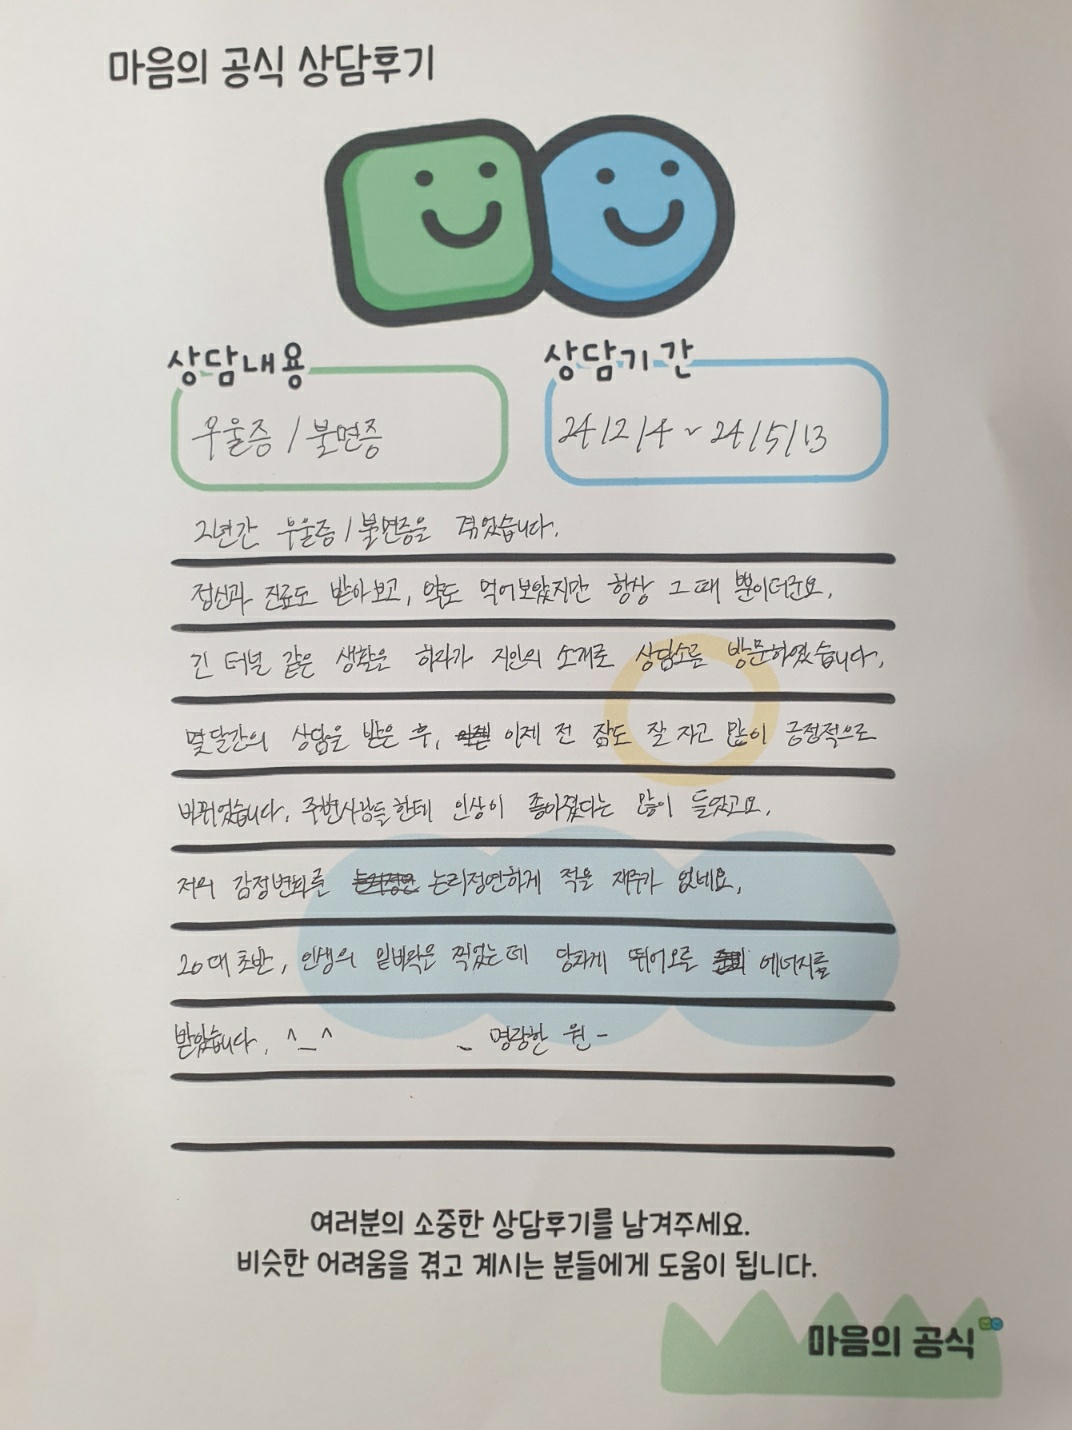 마음의 공식 상담후기
상담내용
상담기간
우울증 / 불면증
24/2/4 ~ 24/5/13
2년간 우울증 / 불면증을 겪었습니다.
정신과 진료도 받아보고, 약도 먹어보았지만 항상 그 때 뿐이더군요.
긴 터널 같은 생활을 하다가 지인의 소개로 상담소를 방문하였습니다.
몇달간의 상담을 받은 후, 이제 전 잠도 잘 자고 많이 긍정적으로
바뀌었습니다. 주변사람들한테 인상이 좋아졌다는 말을 많이 들었고요.
저의 감정변화를 논리정연하게 적을 재주가 없네요.
20대 초반, 인생의 밑바닥을 찍었는데 당차게 뛰어오를 에너지를
받았습니다. ^_^ - 명랑한 원 -
여러분의 소중한 상담후기를 남겨주세요.
비슷한 어려움을 겪고 계시는 분들에게 도움이 됩니다.
마음의 공식